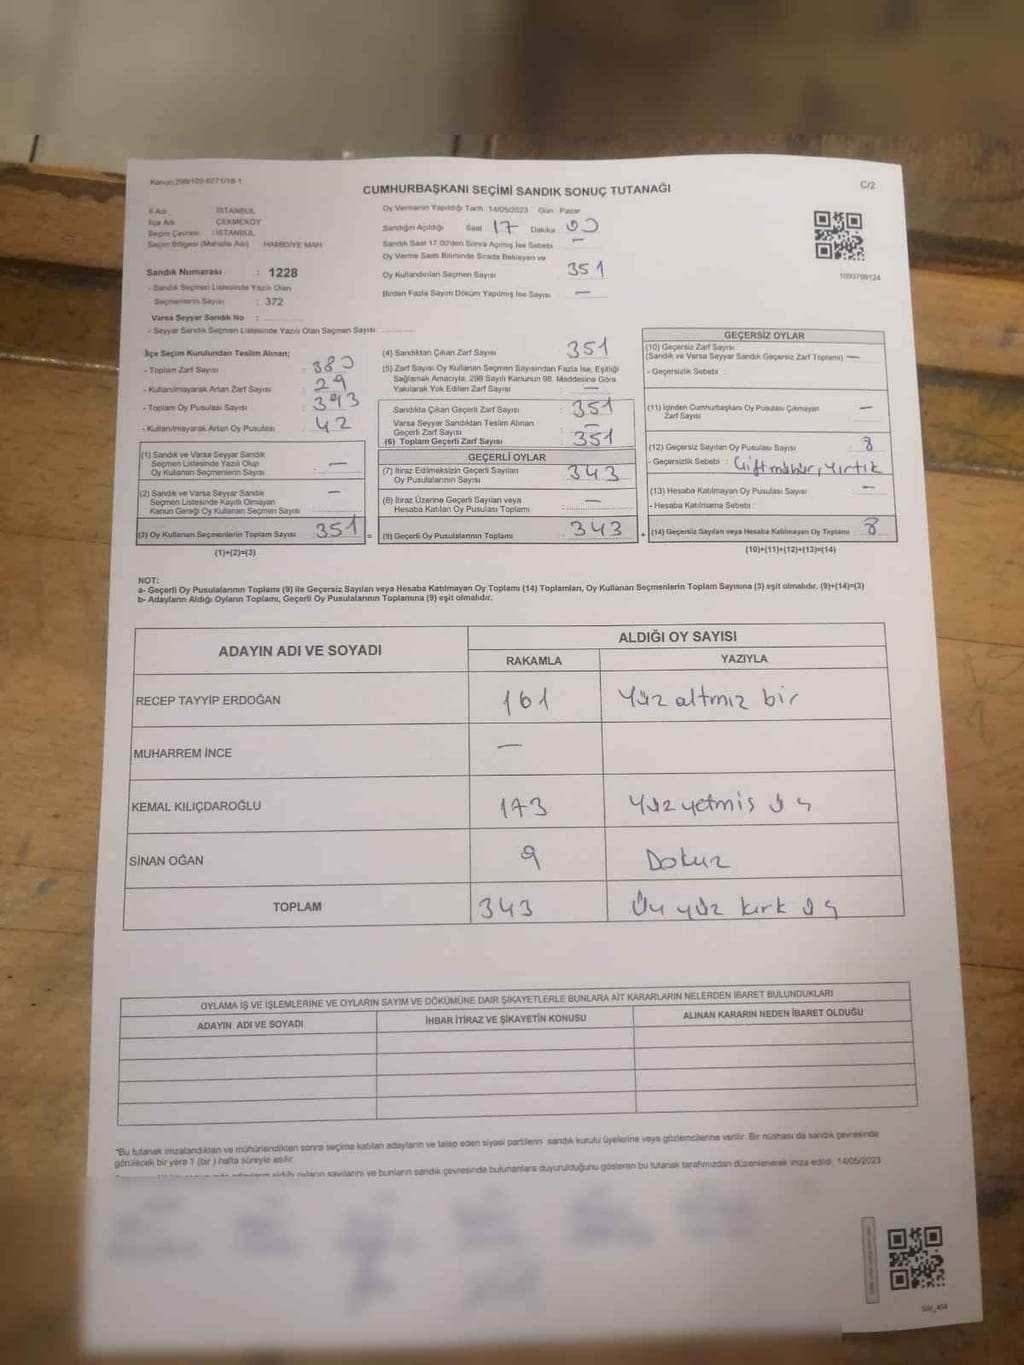 Kanun:298/105-6271/18-1
CUMHURBAŞKANI SEÇİMİ SANDIK SONUÇ TUTANAĞI
C/2
İl Adı : İSTANBUL
İlçe Adı : ÇEKMEKÖY
Seçim Çevresi : İSTANBUL
Seçim Bölgesi (Mahalle Adı) : HAMİDİYE MAH.
Sandık Numarası : 1228
- Sandık Seçmen Listesinde Yazılı Olan
Seçmenlerin Sayısı : 372
Varsa Seyyar Sandık No :
- Seyyar Sandık Seçmen Listesinde Yazılı Olan Seçmen Sayısı:
Oy Vermenin Yapıldığı Tarih :14/05/2023 Gün : Pazar
Sandığın Açıldığı Saat : 17 Dakika : 00
Sandık Saat 17.00'den Sonra Açılmış İse Sebebi : —
Oy Verme Saati Bitiminde Sırada Bekleyen ve
Oy Kullandırılan Seçmen Sayısı 351
Birden Fazla Sayım Döküm Yapılmış İse Sayısı —
1090799124
İlçe Seçim Kurulundan Teslim Alınan;
- Toplam Zarf Sayısı : 380
- Kullanılmayarak Artan Zarf Sayısı : 29
- Toplam Oy Pusulası Sayısı : 393
- Kullanılmayarak Artan Oy Pusulası : 42
(1) Sandık ve Varsa Seyyar Sandık
Seçmen Listesinde Yazılı Olup
Oy Kullanan Seçmenlerin Sayısı : —
(2) Sandık ve Varsa Seyyar Sandık
Seçmen Listesinde Kayıtlı Olmayan
Kanun Gereği Oy Kullanan Seçmen Sayısı : —
(3) Oy Kullanan Seçmenlerin Toplam Sayısı : 351 =
(1)+(2)=(3)
(4) Sandıktan Çıkan Zarf Sayısı : 351
(5) Zarf Sayısı Oy Kullanan Seçmen Sayısından Fazla İse, Eşitliği
Sağlamak Amacıyla, 298 Sayılı Kanunun 98. Maddesine Göre
Yakılarak Yok Edilen Zarf Sayısı : —
Sandıkta Çıkan Geçerli Zarf Sayısı : 351
Varsa Seyyar Sandıktan Teslim Alınan
Geçerli Zarf Sayısı : —
(6) Toplam Geçerli Zarf Sayısı : 351
GEÇERLİ OYLAR
(7) İtiraz Edilmeksizin Geçerli Sayılan
Oy Pusulalarının Sayısı : 343
(8) İtiraz Üzerine Geçerli Sayılan veya
Hesaba Katılan Oy Pusulası Toplamı : —
(9) Geçerli Oy Pusulalarının Toplamı : 343 +
GEÇERSİZ OYLAR
(10) Geçersiz Zarf Sayısı
(Sandık ve Varsa Seyyar Sandık Geçersiz Zarf Toplamı) : —
- Geçersizlik Sebebi :
(11) İçinden Cumhurbaşkanı Oy Pusulası Çıkmayan
Zarf Sayısı : —
(12) Geçersiz Sayılan Oy Pusulası Sayısı : 8
- Geçersizlik Sebebi : Çift mühür, yırtık
(13) Hesaba Katılmayan Oy Pusulası Sayısı : —
- Hesaba Katılmama Sebebi :
(14) Geçersiz Sayılan veya Hesaba Katılmayan Oy Toplamı : 8
(10)+(11)+(12)+(13)=(14)
NOT:
a- Geçerli Oy Pusulalarının Toplamı (9) ile Geçersiz Sayılan veya Hesaba Katılmayan Oy Toplamı (14) Toplamları, Oy Kullanan Seçmenlerin Toplam Sayısına (3) eşit olmalıdır. (9)+(14)=(3)
b- Adayların Aldığı Oyların Toplamı, Geçerli Oy Pusulalarının Toplamına (9) eşit olmalıdır.
ADAYIN ADI VE SOYADI
ALDIĞI OY SAYISI
RAKAMLA YAZIYLA
RECEP TAYYİP ERDOĞAN 161 Yüz altmız bir
MUHARREM İNCE —
KEMAL KILIÇDAROĞLU 173 Yüz yetmis üç
SİNAN OĞAN 9 Dokuz
TOPLAM 343 Üç yüz kırk üç
OYLAMA İŞ VE İŞLEMLERİNE VE OYLARIN SAYIM VE DÖKÜMÜNE DAİR ŞİKAYETLERLE BUNLARA AİT KARARLARIN NELERDEN İBARET BULUNDUKLARI
ADAYIN ADI VE SOYADI İHBAR İTİRAZ VE ŞİKAYETİN KONUSU ALINAN KARARIN NEDEN İBARET OLDUĞU
*Bu tutanak imzalandıktan ve mühürlendikten sonra seçime katılan adayların ve talep eden siyasi partilerin sandık kurulu üyelerine veya gözlemcilerine verilir. Bir nüshası da sandık çevresinde
görülecek bir yere 1 (bir ) hafta süreyle asılır.
aldığı oyların sayılarını ve bunların sandık çevresinde bulunanlara duyurulduğunu gösteren bu tutanak tarafımızdan düzenlenerek imza edildi. 14/05/2023